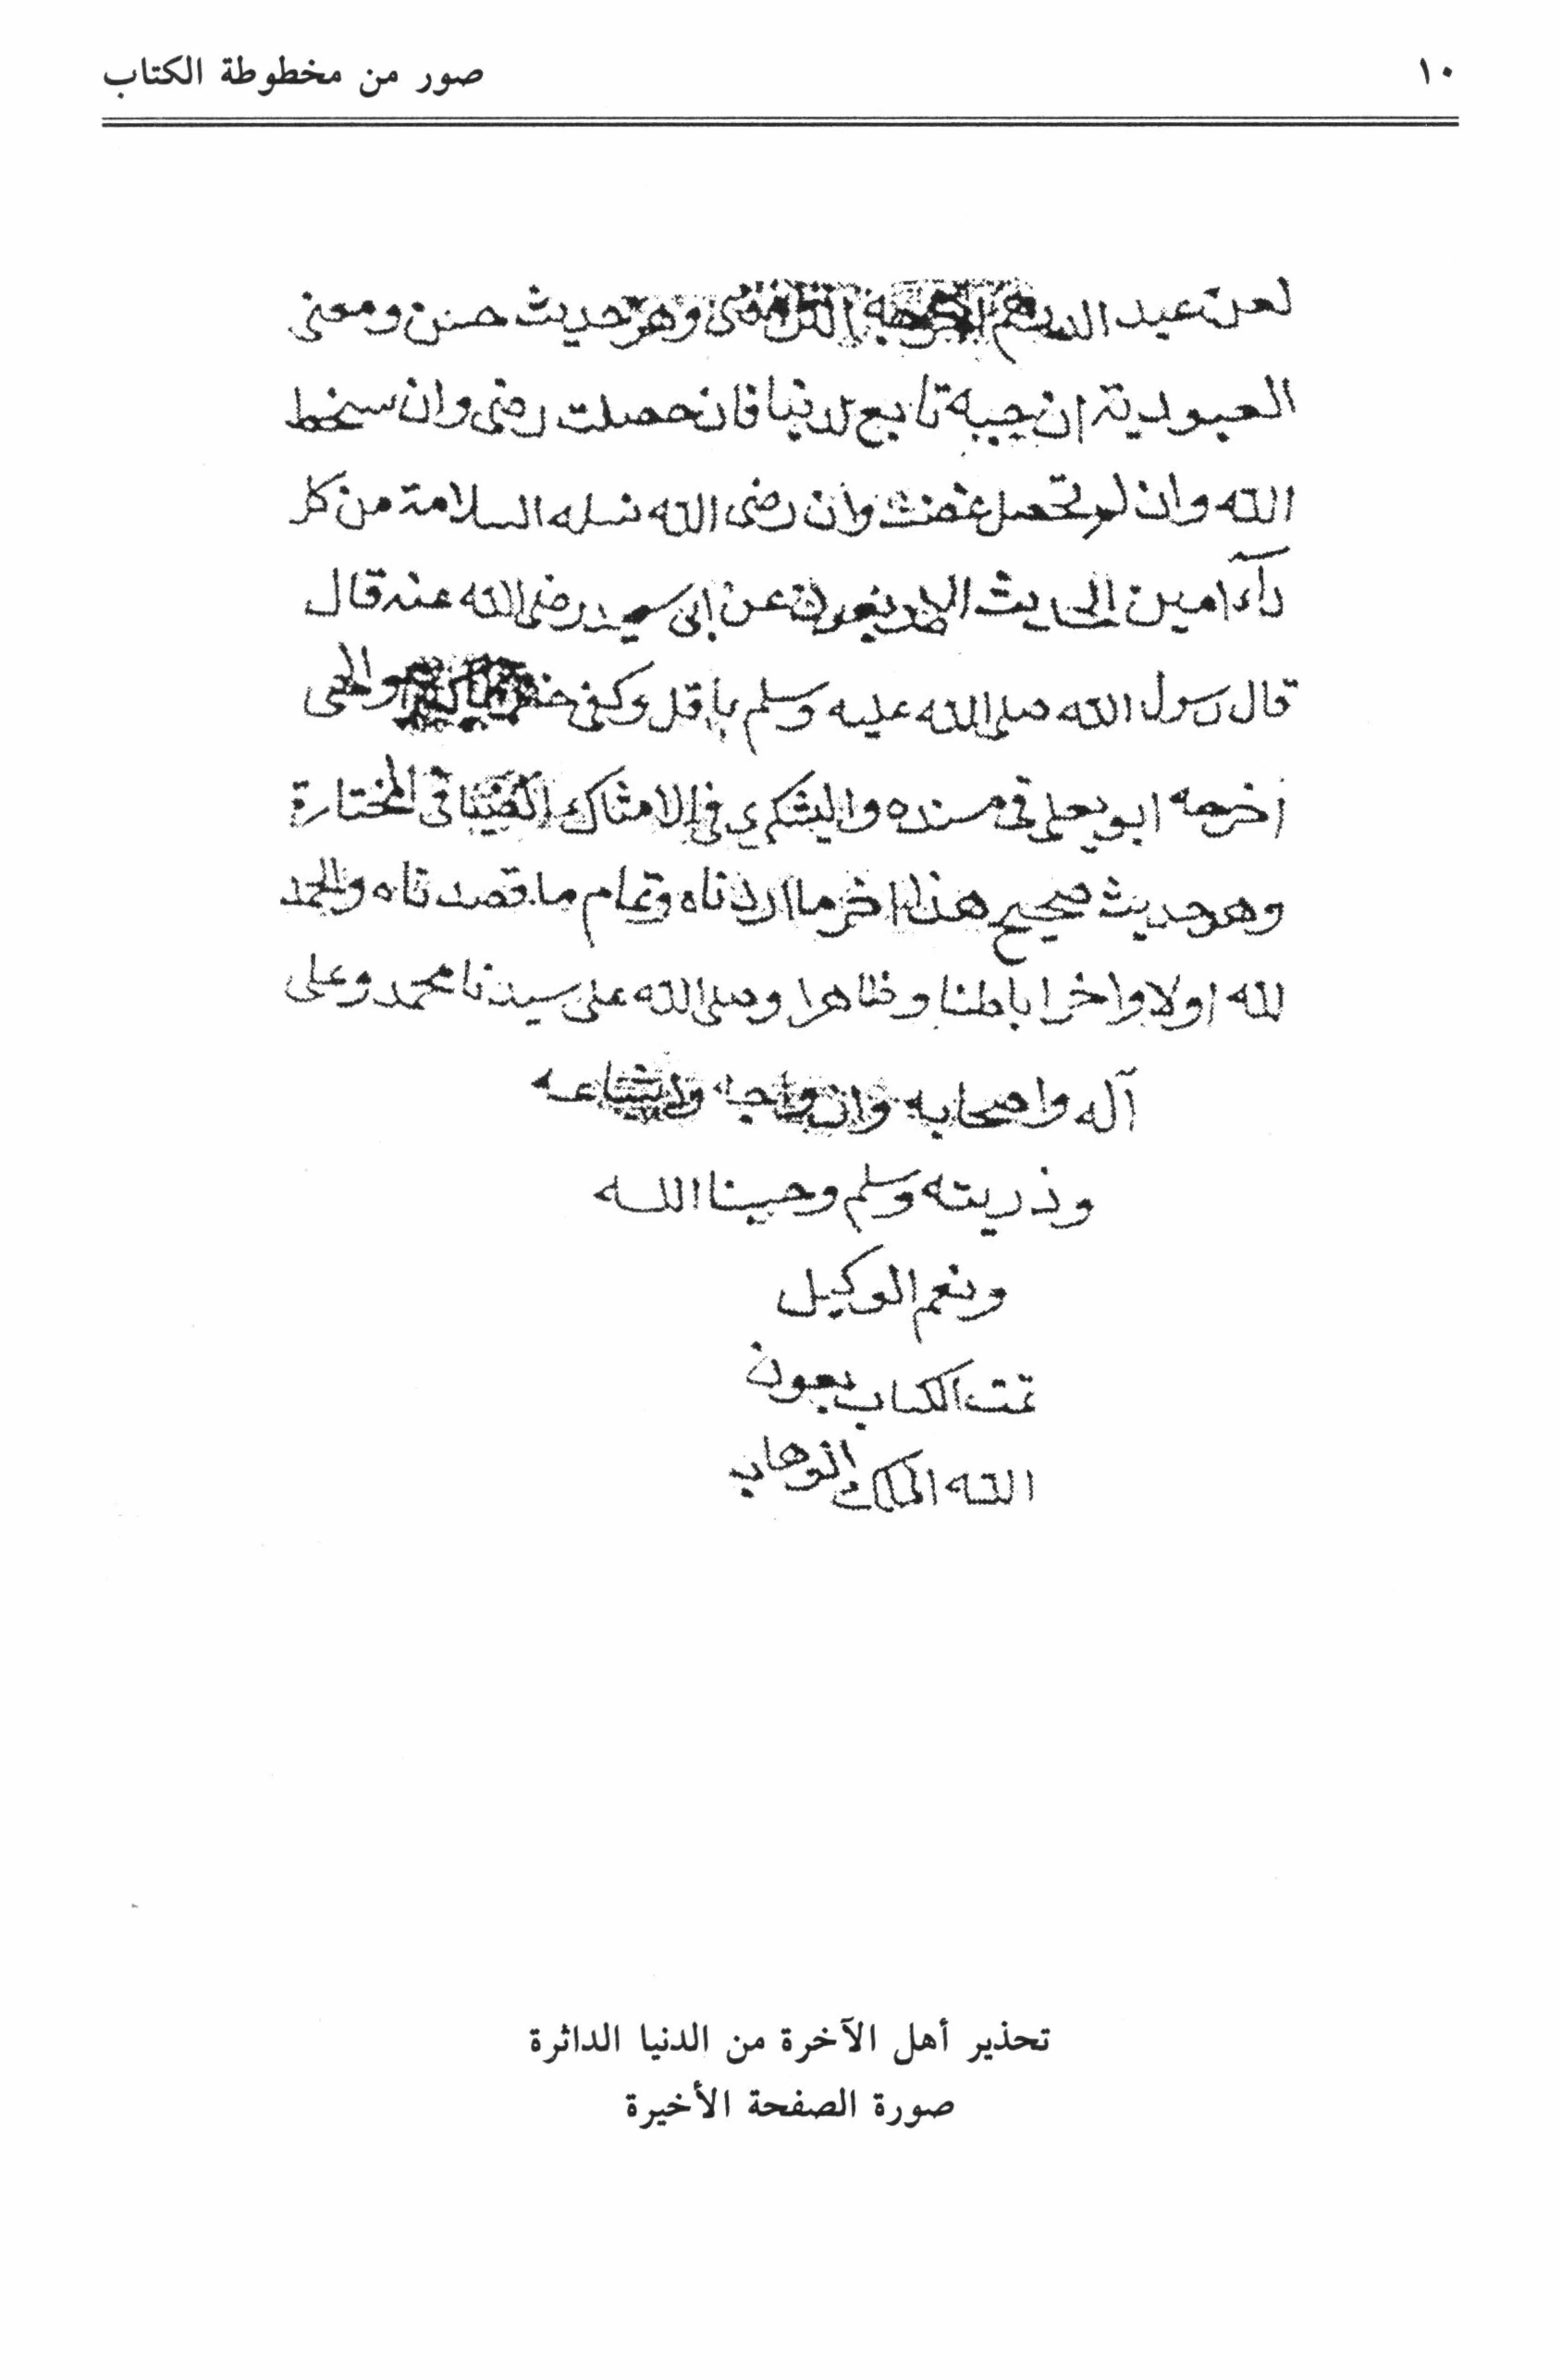 ١٠
صور من مخطوطة الكتاب
لعن عبد الدرهم اخرجه الترمذى وهو حديث حسن ومعنى
العبودية ان حبه تابع للدنيا فان حصلت رضى وان سخط
الله وان لم تحصل غضب وان رضى الله نسله السلامة من كل
دآء امين الحديث الاربعون عن ابى سعيد رضى الله عنه قال
قال رسول الله صلى الله عليه وسلم ما قل وكفى خير مما كثر والهى
اخرجه ابو يعلى فى مسنده والعسكري فى الامثال والضيا فى المختارة
وهو حديث صحيح هذا اخر ما اردناه وتمام ما قصدناه والحمد
لله اولا واخرا باطنا وظاهرا وصلى الله على سيدنا محمد وعلى
آله واصحابه وازواجه واشياعه
وذريته وسلم وحسبنا الله
ونعم الوكيل
تمت الكتاب بعون
الله الملك الوهاب
تحذير أهل الآخرة من الدنيا الداثرة
صورة الصفحة الأخيرة